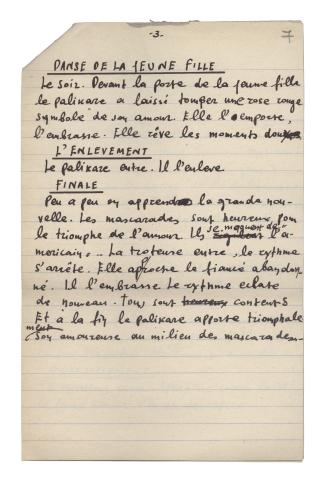 -3-
7
DANSE DE LA JEUNE FILLE
Le soir. Devant la porte de la jeune fille
le palikare a laissé tomber une rose rouge
symbole de son amour. Elle l'emporte,
l'embrasse. Elle rêve les moments doux.
L'ENLEVEMENT
Le palikare entre. Il l'enleve
FINALE
Peu a peu on apprend la grande nou-
velle. Les mascarades sont heureux pour
le triomphe de l'amour. Ils se moquent de l'a-
mericain... La troteuse entre, le rythme
s'arrête. Elle aproche le fiancé abandon
né. Il l'embrasse Le rythme eclate
de nouveau. Tous sont contents
Et à la fin le palikare apporte triomphale
ment
son amoureuse au milieu des mascarades-